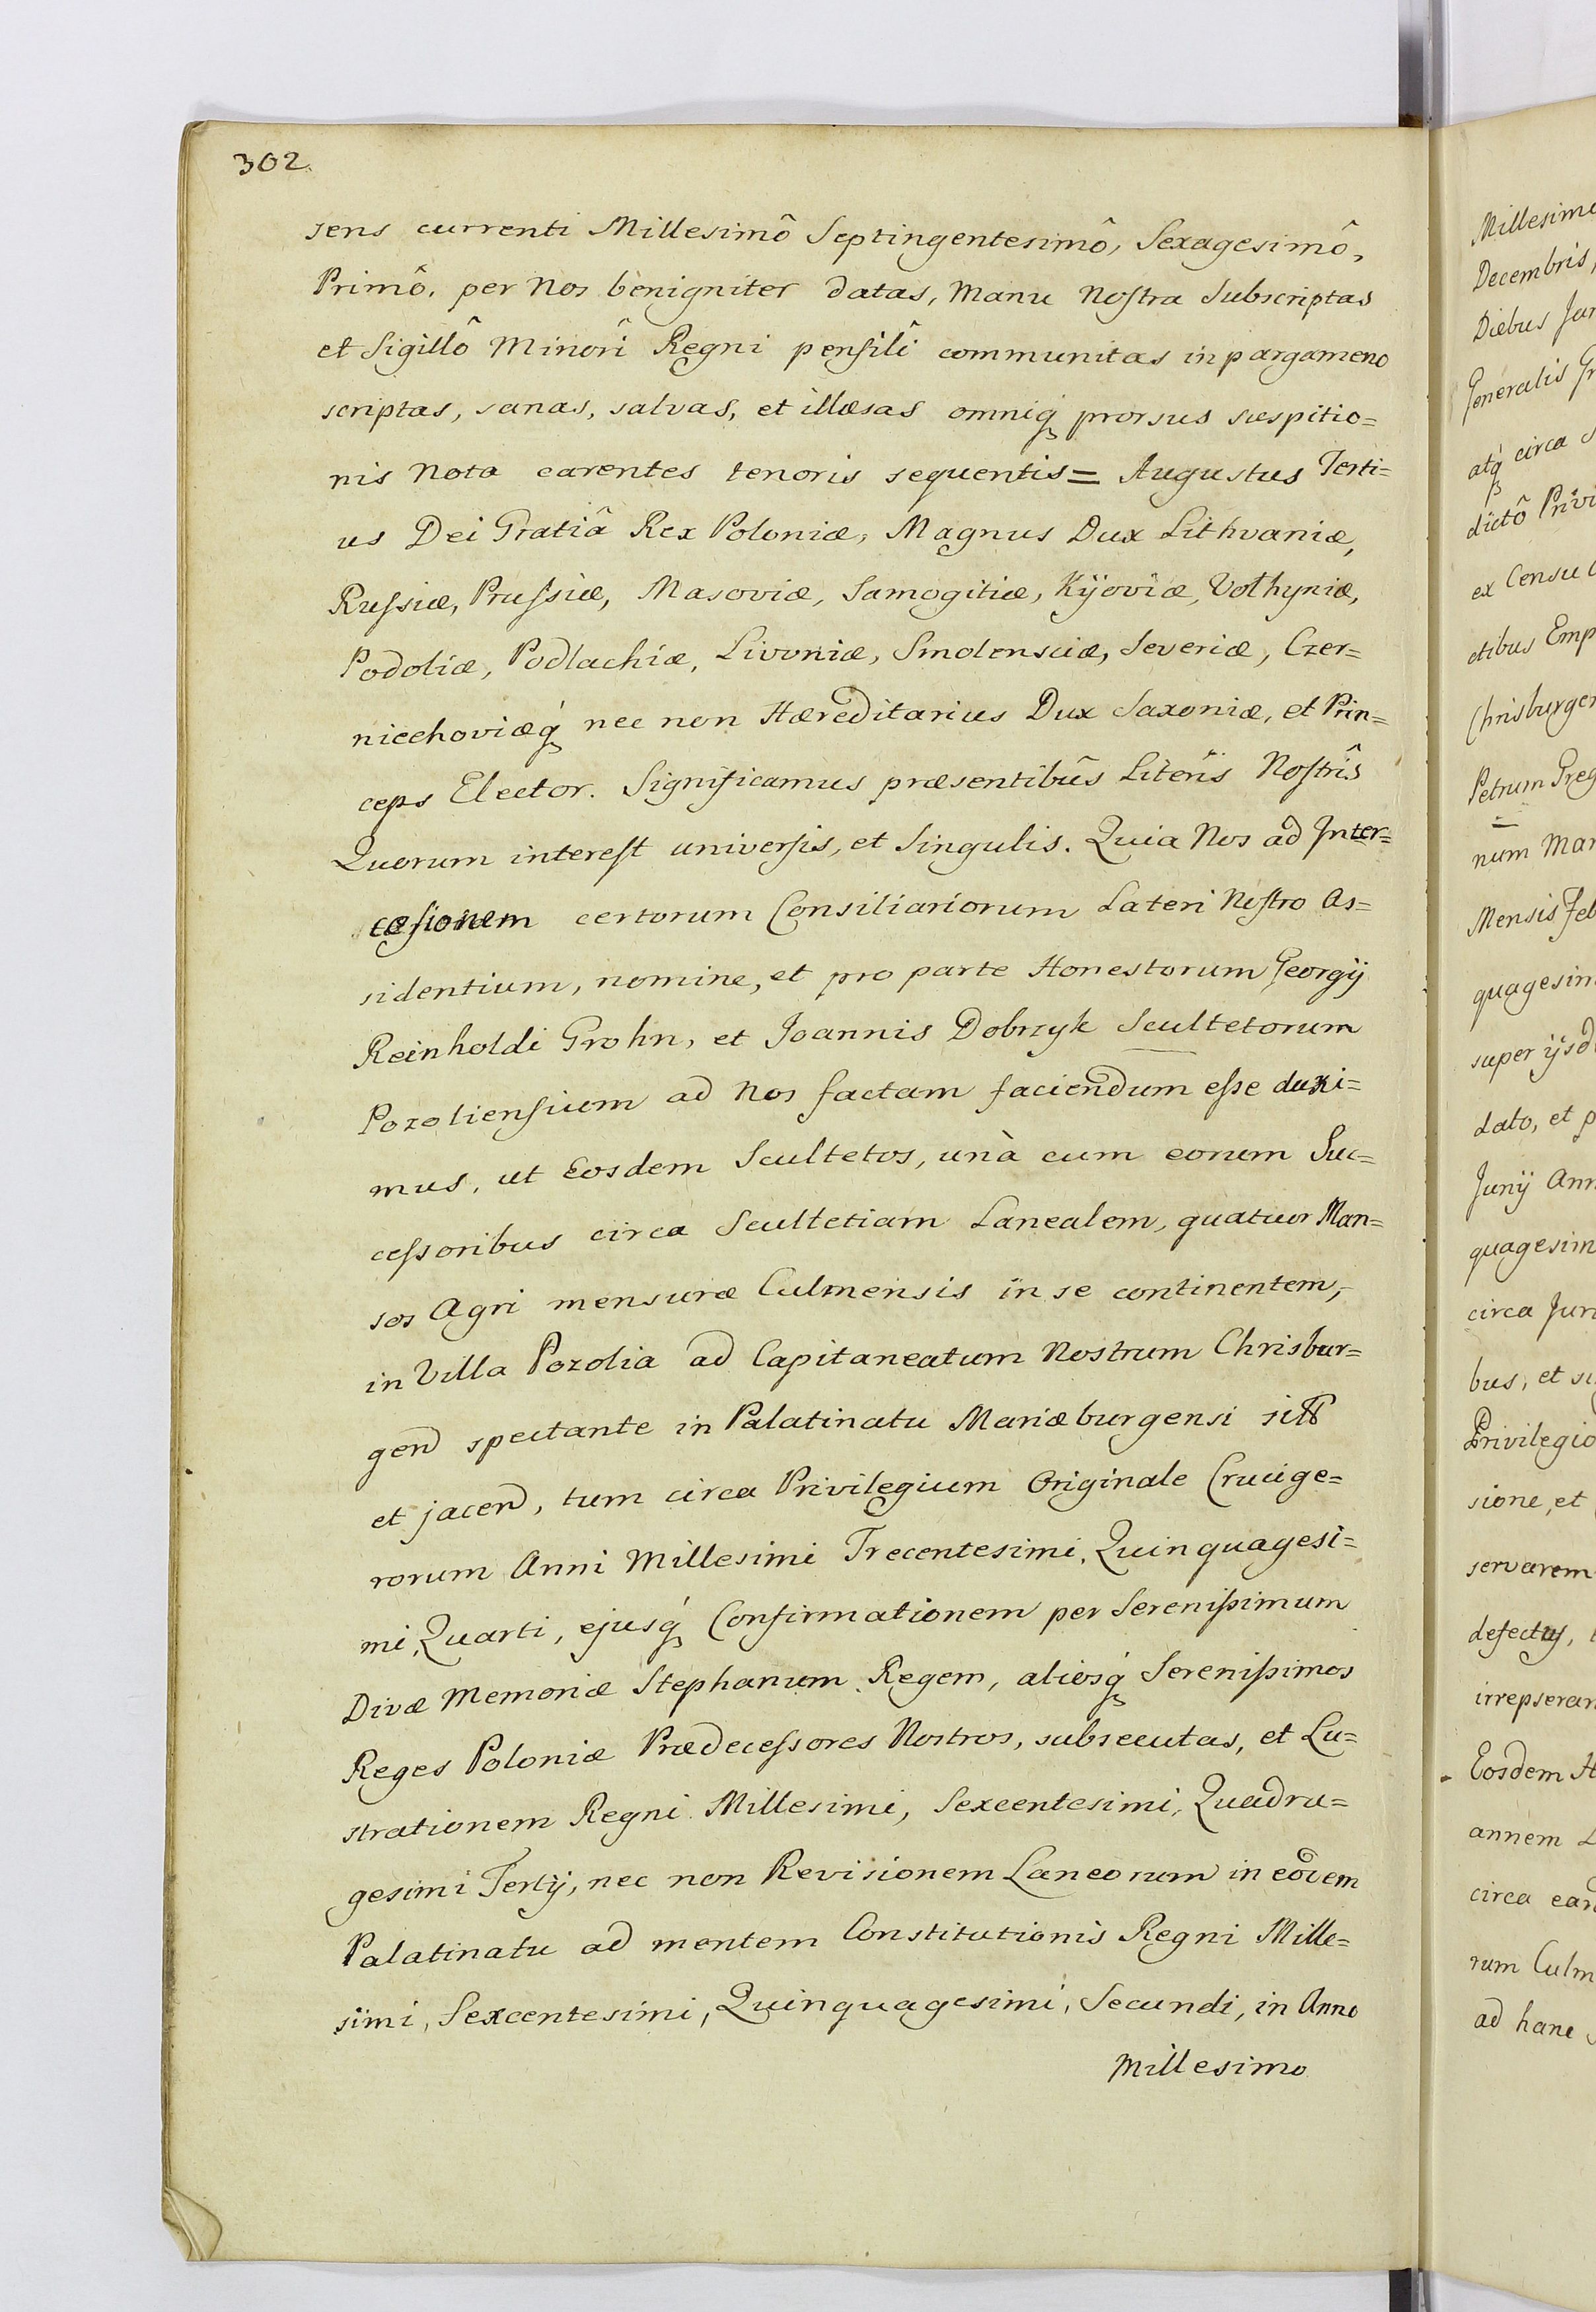 302.
sens currenti Millesimô Septingentesimô, Sexagesimô,
Primô, per Nos benigniter datas, Manu Nostra Subscriptas
et Sigillô Minorî Regni pensilî communitas in pargameno
scriptas, sanas, salvas, et illæsas omniq́ʒ prorsus suspitio=
nis Nota carentes tenoris sequentis= Augustus Terti=
us Dei Gratiâ Rex Poloniæ, Magnus Dux Lithvaniæ,
Russiæ, Prussiæ, Masoviæ, Samogitiæ, Kijoviæ, Volhyniæ,
Podoliæ, Podlachiæ, Livoniæ, Smolensciæ, Severiæ, Czer=
niechoviæq́ʒ nec non Hæreditarius Dux Saxoniæ, et Prin=
ceps Elector. Significamus præsentibûs Literîs Nostrîs
Quorum interest universis, et Singulis. Quia Nos ad Inter=
cæsionem certorum Consiliariorum Lateri Nostro As=
sidentium, nomine, et pro parte Honestorum Georgij
Reinholdi Grohn, et Joannis Dobrzyk Scultetorum
Pozoliensium ad Nos factam faciendum esse duxi=
mus, ut Eosdem Scultetos, unà cum eorum Suc=
cessoribus circa Scultetiam Lanealem, quatuor Man=
sos Agri mensuræ Culmensis in se continentem,
in Villa Pozolia ad Capitaneatum Nostrum Chrisbur=
gen spectante in Palatinatu Mariæburgensi sitt
et jacen, tum circa Privilegium Originale Crucige=
rorum Anni Millesimi Trecentesimi, Quinquagesi=
mi, Quarti, ejusq́ʒ Confirmationem per Serenissimum
Divæ Memoriæ Stephanum Regem, aliosq́ʒ Serenissimos
Reges Poloniæ Prædecessores Nostros, subsecutas, et Lu=
strationem Regni Millesimi, Sexcentesimi, Quadra=
gesimi Tertij, nec non Revisionem Laneorum in eodem
Palatinatu ad mentem Constitutionis Regni Mille=
simi, Sexcentesimi, Quinquagesimi, Secundi, in Anno
Millesimo
Millesimo
Decembris,
Diebus Jur
Generalis Gr
atq́ʒ circa
dictô Privi
ex Censu
ctibus Emp
Chrisburgen
Petrum Greg
num Mar
Mensis Feb
quagesim
super ijsd
dato, et p
Junij Ann
quagesim
circa Jura
bus, et si
Privilegio
sione, et
servarem
defectus,
irrepseran
Eosdem H
annem
circa ean
rum Culm
ad hanc